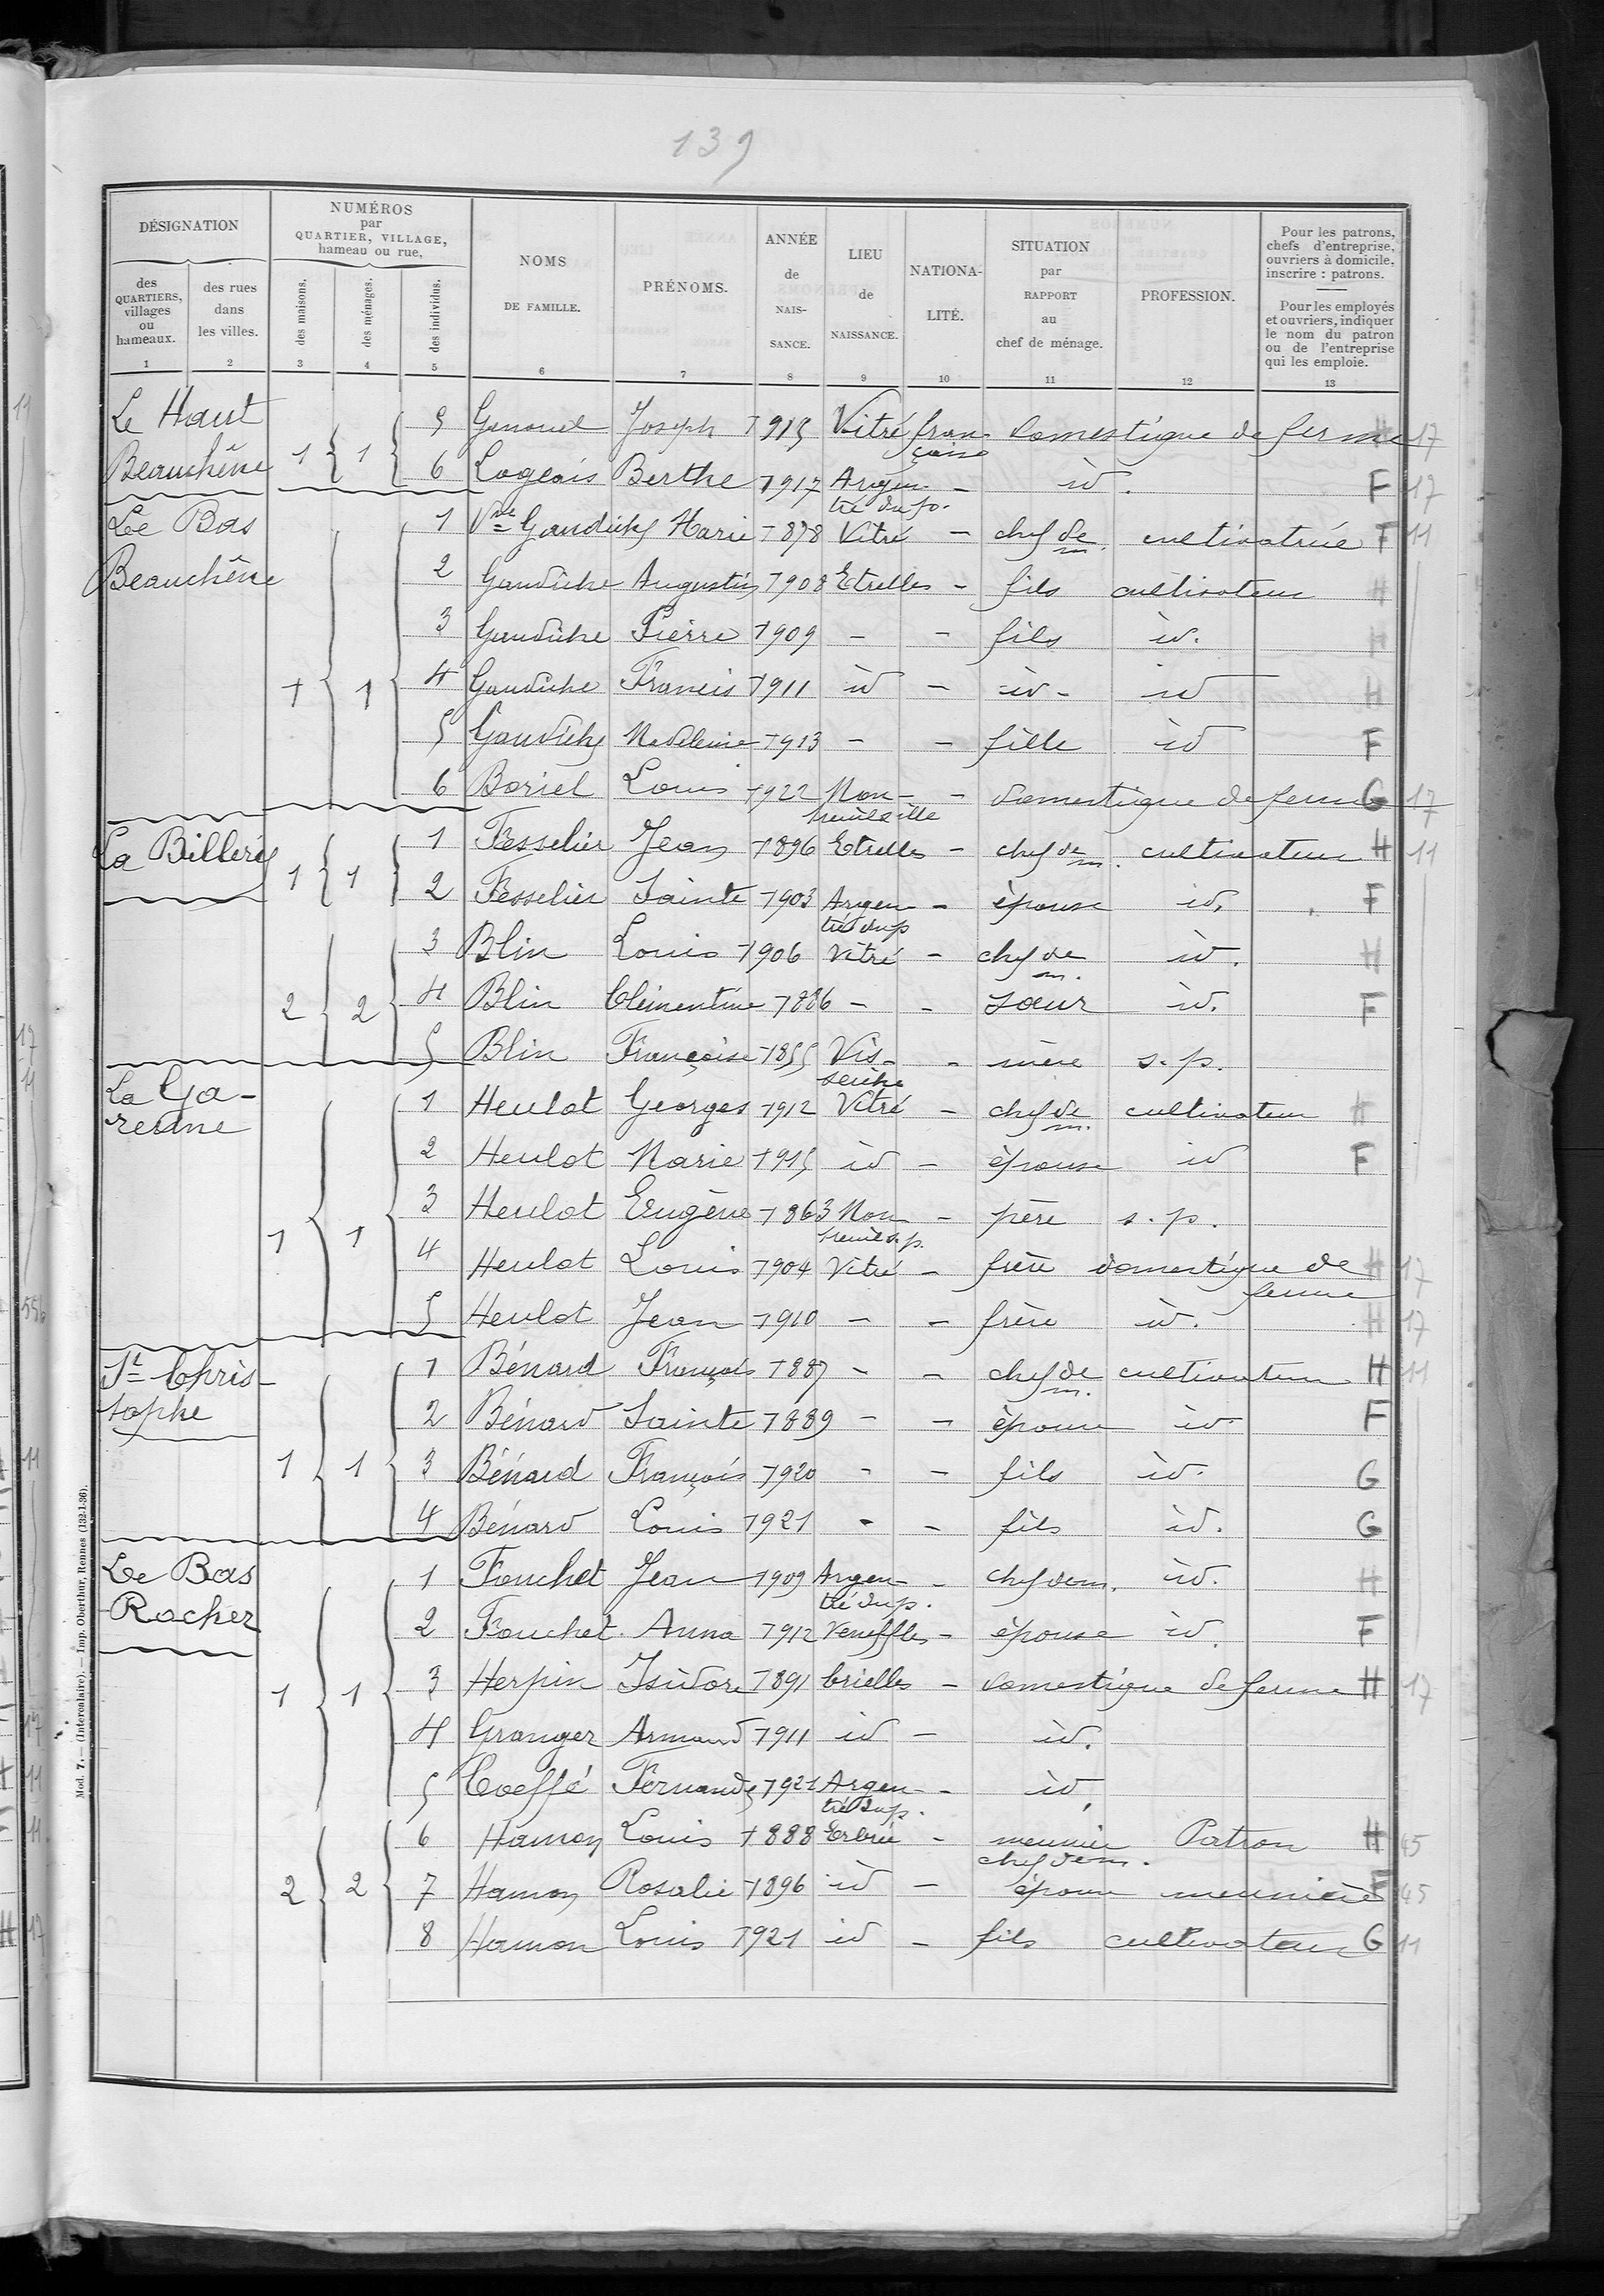 139
DÉSIGNATION
des QUARTIERS, villages ou hameaux. 1
des rues dans les villes. 2
NUMÉROS par QUARTIER, VILLAGE, hameau ou rue,
des maisons. 3
des ménages. 4
des individus. 5
NOMS DE FAMILLE. 6
PRÉNOMS. 7
ANNÉE de NAIS- SANCE. 8
LIEU de NAISSANCE. 9
NATIONA- LITÉ. 10
SITUATION par RAPPORT au chef de ménage. 11
PROFESSION. 12
Pour les patrons, chefs d'entreprise, ouvriers à domicile, inscrire : patrons.
Pour les employés et ouvriers, indiquer le nom du patron ou de l'entreprise qui les emploie. 13
Le Haut Beauchêne 1 1 5 Genouel Joseph 1915 Vitré française domestique de ferme H 17
6 Logeais Berthe 1917 Argentré du p. - id. F 17
Le Bas Beauchêne 1 1 1 Vve Gandiche Marie 1878 Vitré - chef de m. cultivatrice F 11
2 Gandiche Augustin 1908 Etrelles - fils cultivateur H
3 Gandiche Pierre 1909 - - fils id. H
4 Gandiche Francis 1911 id - id - id H
5 Gandiche Madeleine 1913 - - fille id F
6 Boriel Louis 1922 - domestique de ferme G 17
La Billerie 1 1 1 Fesselier Jean 1896 Etrelles - chef de m. cultivateur H 11
2 Fesselier Sainte 1903 Argentré du p - épouse id. F
2 2 3 Blin Louis 1906 Vitré - chef de m. id. H
4 Blin Clémentine 1886 - - sœur id. F
5 Blin Françoise 1855 Visseiche - mère s. p.
La Garenne 1 1 1 Heulot Georges 1912 Vitré - chef de m. cultivateur H
2 Heulot Marie 1915 id - épouse id F
3 Heulot Eugène 1863 Montreuil s. p. - père s. p.
4 Heulot Louis 1904 Vitré - frère domestique de ferme H 17
5 Heulot Jean 1910 - - frère id. H 17
St Christophe 1 1 1 Bénard François 1887 - - chef de m. cultivateur H 11
2 Bénard Sainte 1889 - - épouse id F
3 Bénard François 1920 - - fils id. G
4 Bénard Louis 1921 - - fils id. G
Le Bas Rocher 1 1 1 Fouchet Jean 1909 Argentré du p. - chef de m. id. H
2 Fouchet Anna 1912 Veneffles - épouse id. F
3 Herpin Isidore 1891 Brielles - domestique de ferme H 17
4 Granger Armand 1911 id - id.
5 Coeffé Fernande 1921 Argentré du p. - id.
2 2 6 Hamon Louis 1888 Erbrée - meunier chef de m. Patron H 45
7 Hamon Rosalie 1896 id - épouse meunière F 45
8 Hamon Louis 1921 id - fils cultivateur G 11
Mod. 7. — (Intercalaire). — Imp. Oberthur, Rennes (132-1-36).